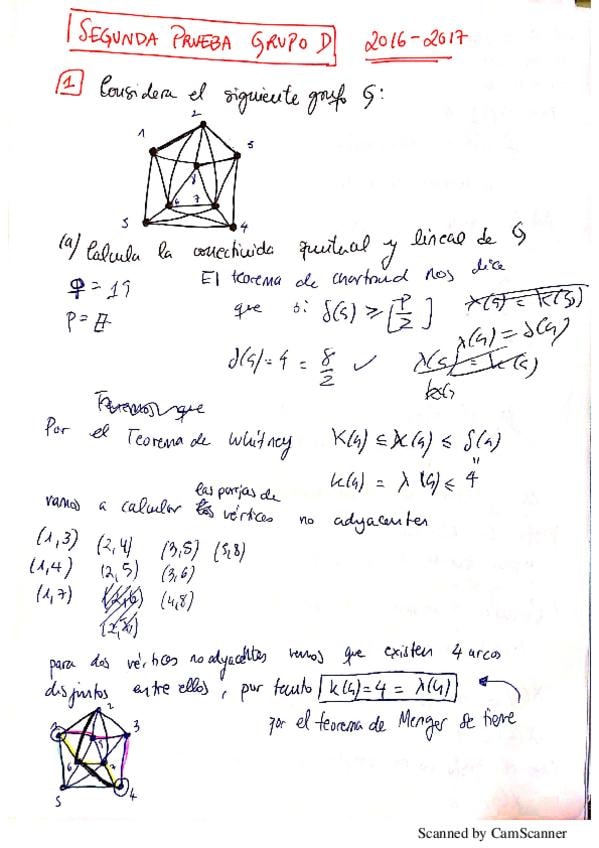 SEGUNDA PRUEBA GRUPO D 2016-2017
1 Considera el siguiente grafo G:
2
1
3
8
6 7
5
4
(a) Calcula la conectividad puntual y lineal de G
q = 19
El teorema de chartrand nos dice
p = 8
que si δ(G) ≥ [p/2] λ(G) = k(G)
λ(G) = δ(G)
δ(G) = 4 = 8/2 ✓ λ(G) = k(G)
Tenemos que
Por el Teorema de Whitney K(G) ≤ λ(G) ≤ δ(G)
k(G) = λ(G) ≤ 4
vamos a calcular las parejas de vértices no adyacentes
(1,3) (2,4) (3,5) (5,8)
(1,4) (2,5) (3,6)
(1,7) (2,6) (4,8)
(2,7)
para dos vértices no adyacentes vemos que existen 4 arcos
disjuntos entre ellos, por tanto k(G)=4=λ(G)
por el teorema de Menger se tiene
2
3
6
7
5
4
Scanned by CamScanner